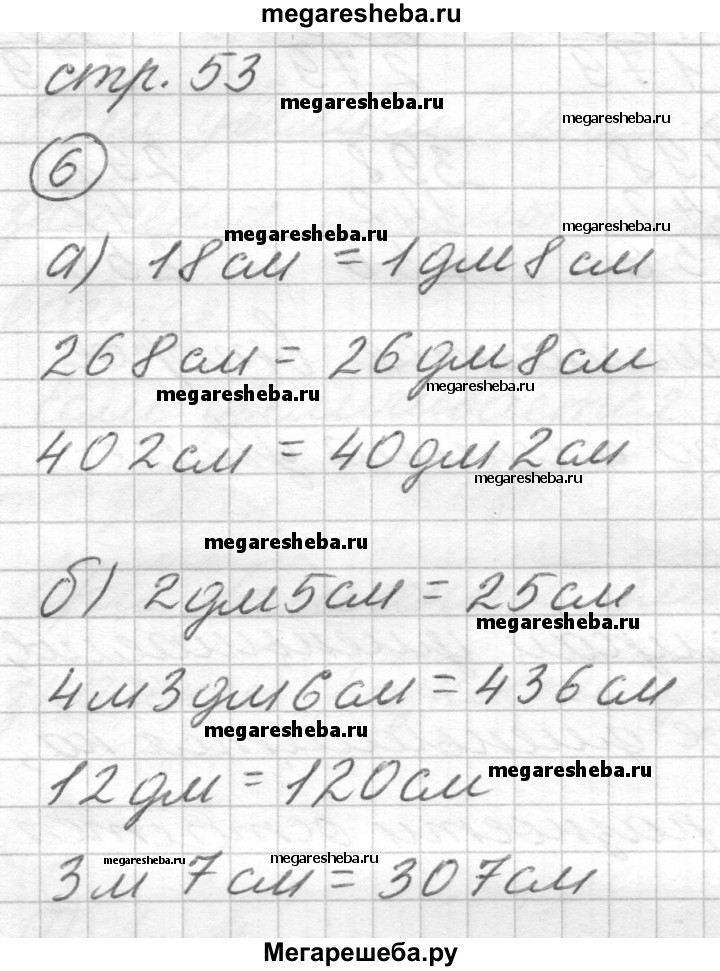 megaresheba.ru
стр. 53
megaresheba.ru
megaresheba.ru
6
megaresheba.ru
megaresheba.ru
а) 18см = 1дм 8см
268см = 26дм 8см
megaresheba.ru
megaresheba.ru
402см = 40дм 2см
megaresheba.ru
megaresheba.ru
б) 2дм 5см = 25см
megaresheba.ru
4м 3дм 6см = 436см
megaresheba.ru
12дм = 120см
megaresheba.ru
megaresheba.ru
megaresheba.ru
3м 7см = 307см
Мегарешеба.ру